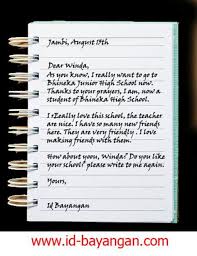 Jambi, August 15th
Dear Winda,
As you know, I really want to go to
Bhineka Junior High School now.
Thanks to your prayers, I am, now a
student of Bhineka High School.
I rZeally love this school, the teacher
are nice. I have so many new friends
here. They are very friendly . I love
making friends with them.
How about you, Winda? Do you like
your school? please write to me again.
Yours,
Id Bayangan
www.id-bayangan.com